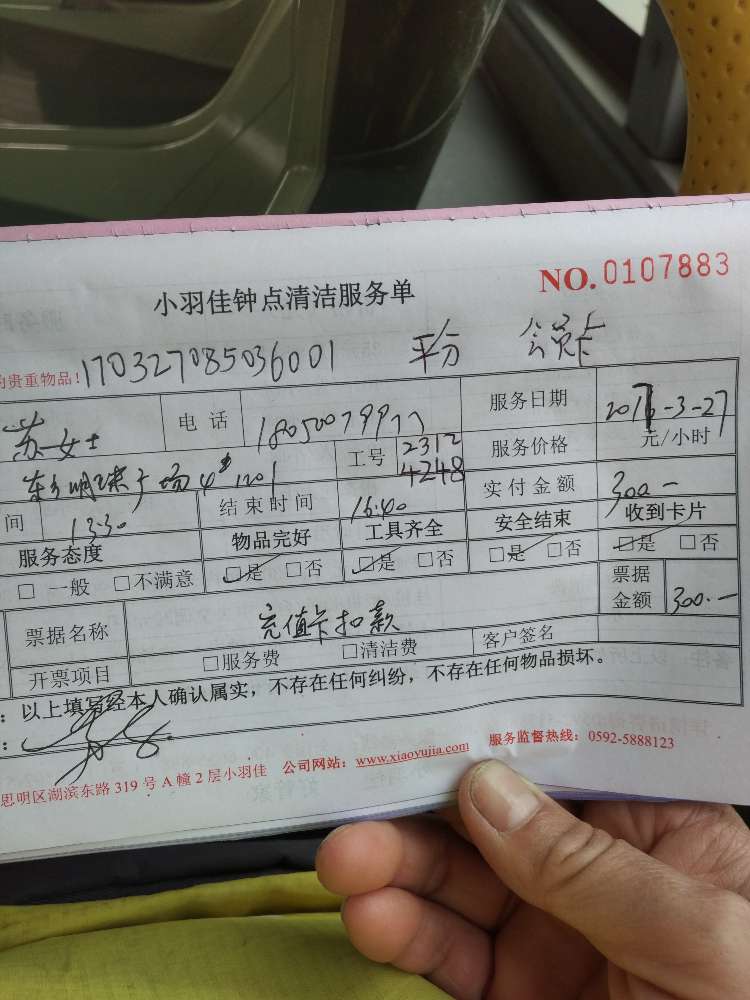 NO.0107883
小羽佳钟点清洁服务单
的贵重物品!170327085036001 平分 会员卡
苏女士 电话 服务日期 2017-3-27
广场 4# 1201 工号 2312 4248 服务价格 元/小时
间 13:30 结束时间 16:40 实付金额 300-
服务态度 物品完好 工具齐全 安全结束 收到卡片
□ 一般 □不满意 □是 □否 □是 □否 □是 □否 □是 □否
票据名称 充值卡扣款 票据金额 300.-
开票项目 □服务费 □清洁费 客户签名
：以上填写经本人确认属实，不存在任何纠纷，不存在任何物品损坏。
：
思明区湖滨东路319号A幢2层小羽佳 公司网站：www.xiaoyujia.com 服务监督热线：0592-5888123